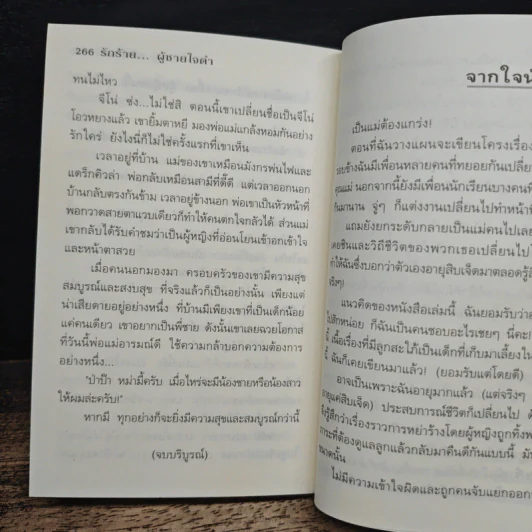 266 รักร้าย... ผู้ชายใจดำ
ทนไม่ไหว
จีโน่ ซ่ง...ไม่ใช่สิ ตอนนี้เขาเปลี่ยนชื่อเป็นจีโน่
โอวหยางแล้ว เขายิ้มตาหยี มองพ่อแม่แกล้งหอมกันอย่าง
รักใคร่ ยังไงนี่ก็ไม่ใช่ครั้งแรกที่เขาเห็น
เวลาอยู่ที่บ้าน แม่ของเขาเหมือนมังกรพ่นไฟและ
แดร็กคิวล่า พ่อกลับเหมือนสามีที่ดี๊ดี แต่เวลาออกนอก
บ้านกลับตรงกันข้าม เวลาอยู่ข้างนอก พ่อเขาเป็นหัวหน้าที่
พอกวาดสายตาแวบเดียวก็ทำให้คนตกใจกลัวได้ ส่วนแม่
เขากลับได้รับคำชมว่าเป็นผู้หญิงที่อ่อนโยนเข้าอกเข้าใจ
และหน้าตาสวย
เมื่อคนนอกมองมา ครอบครัวของเขามีความสุข
สมบูรณ์และสงบสุข ที่จริงแล้วก็เป็นอย่างนั้น เพียงแต่
น่าเสียดายอยู่อย่างหนึ่ง ที่บ้านมีเพียงเขาที่เป็นเด็กน้อย
แค่คนเดียว เขาอยากเป็นพี่ชาย ดังนั้นเขาเลยฉวยโอกาส
ที่วันนี้พ่อแม่อารมณ์ดี ใช้ความกล้าบอกความต้องการ
อย่างหนึ่ง...
"ป่าป๊า หม่ามี้ครับ เมื่อไหร่จะมีน้องชายหรือน้องสาว
ให้ผมล่ะครับ!"
หากมี ทุกอย่างก็จะยิ่งมีความสุขและสมบูรณ์กว่านี้
(จบบริบูรณ์)
จากใจนั
เป็นแม่ต้องแกร่ง!
ตอนที่ฉันวางแผนจะเขียนโครงเรื่อง
รอบข้างฉันมีเพื่อนหลายคนที่ทยอยกันเปลี่ยน
คุณแม่ นอกจากนี้ยังมีเพื่อนนักเรียนบางคนที่
กันมานาน จู่ๆ ก็แต่งงานเปลี่ยนไปทำหน้าที่
แถมยังยกระดับกลายเป็นแม่คนไปเลย
โดยชินและวิถีชีวิตของพวกเธอเปลี่ยนไป
ทำให้ฉันซึ่งบอกว่าตัวเองอายุสิบเจ็ดมาตลอดรู้สึ
จริงๆ!
แนวคิดของหนังสือเล่มนี้ ฉันยอมรับว่า
ไปสักหน่อย ก็ฉันเป็นคนชอบอะไรเชยๆ นี่คะ!
นี้ เนื้อเรื่องที่มีลูกสะใภ้เป็นเด็กที่เก็บมาเลี้ยงใน
นี้ ฉันก็เคยเขียนมาแล้ว! (ยอมรับแต่โดยดี)
อาจเป็นเพราะฉันอายุมากแล้ว (แต่จริงๆ
อายุแค่สิบเจ็ด) ประสบการณ์ชีวิตก็เปลี่ยนไป
รู้สึกว่าเรื่องราวการหย่าร้างโดยผู้หญิงถูกทิ้ง
ภาระที่ต้องดูแลลูกแล้วกลับมาคืนดีกันแบบนี้
ขนาดนั้น
ไม่มีความเข้าใจผิดและถูกคนจับแยกออก